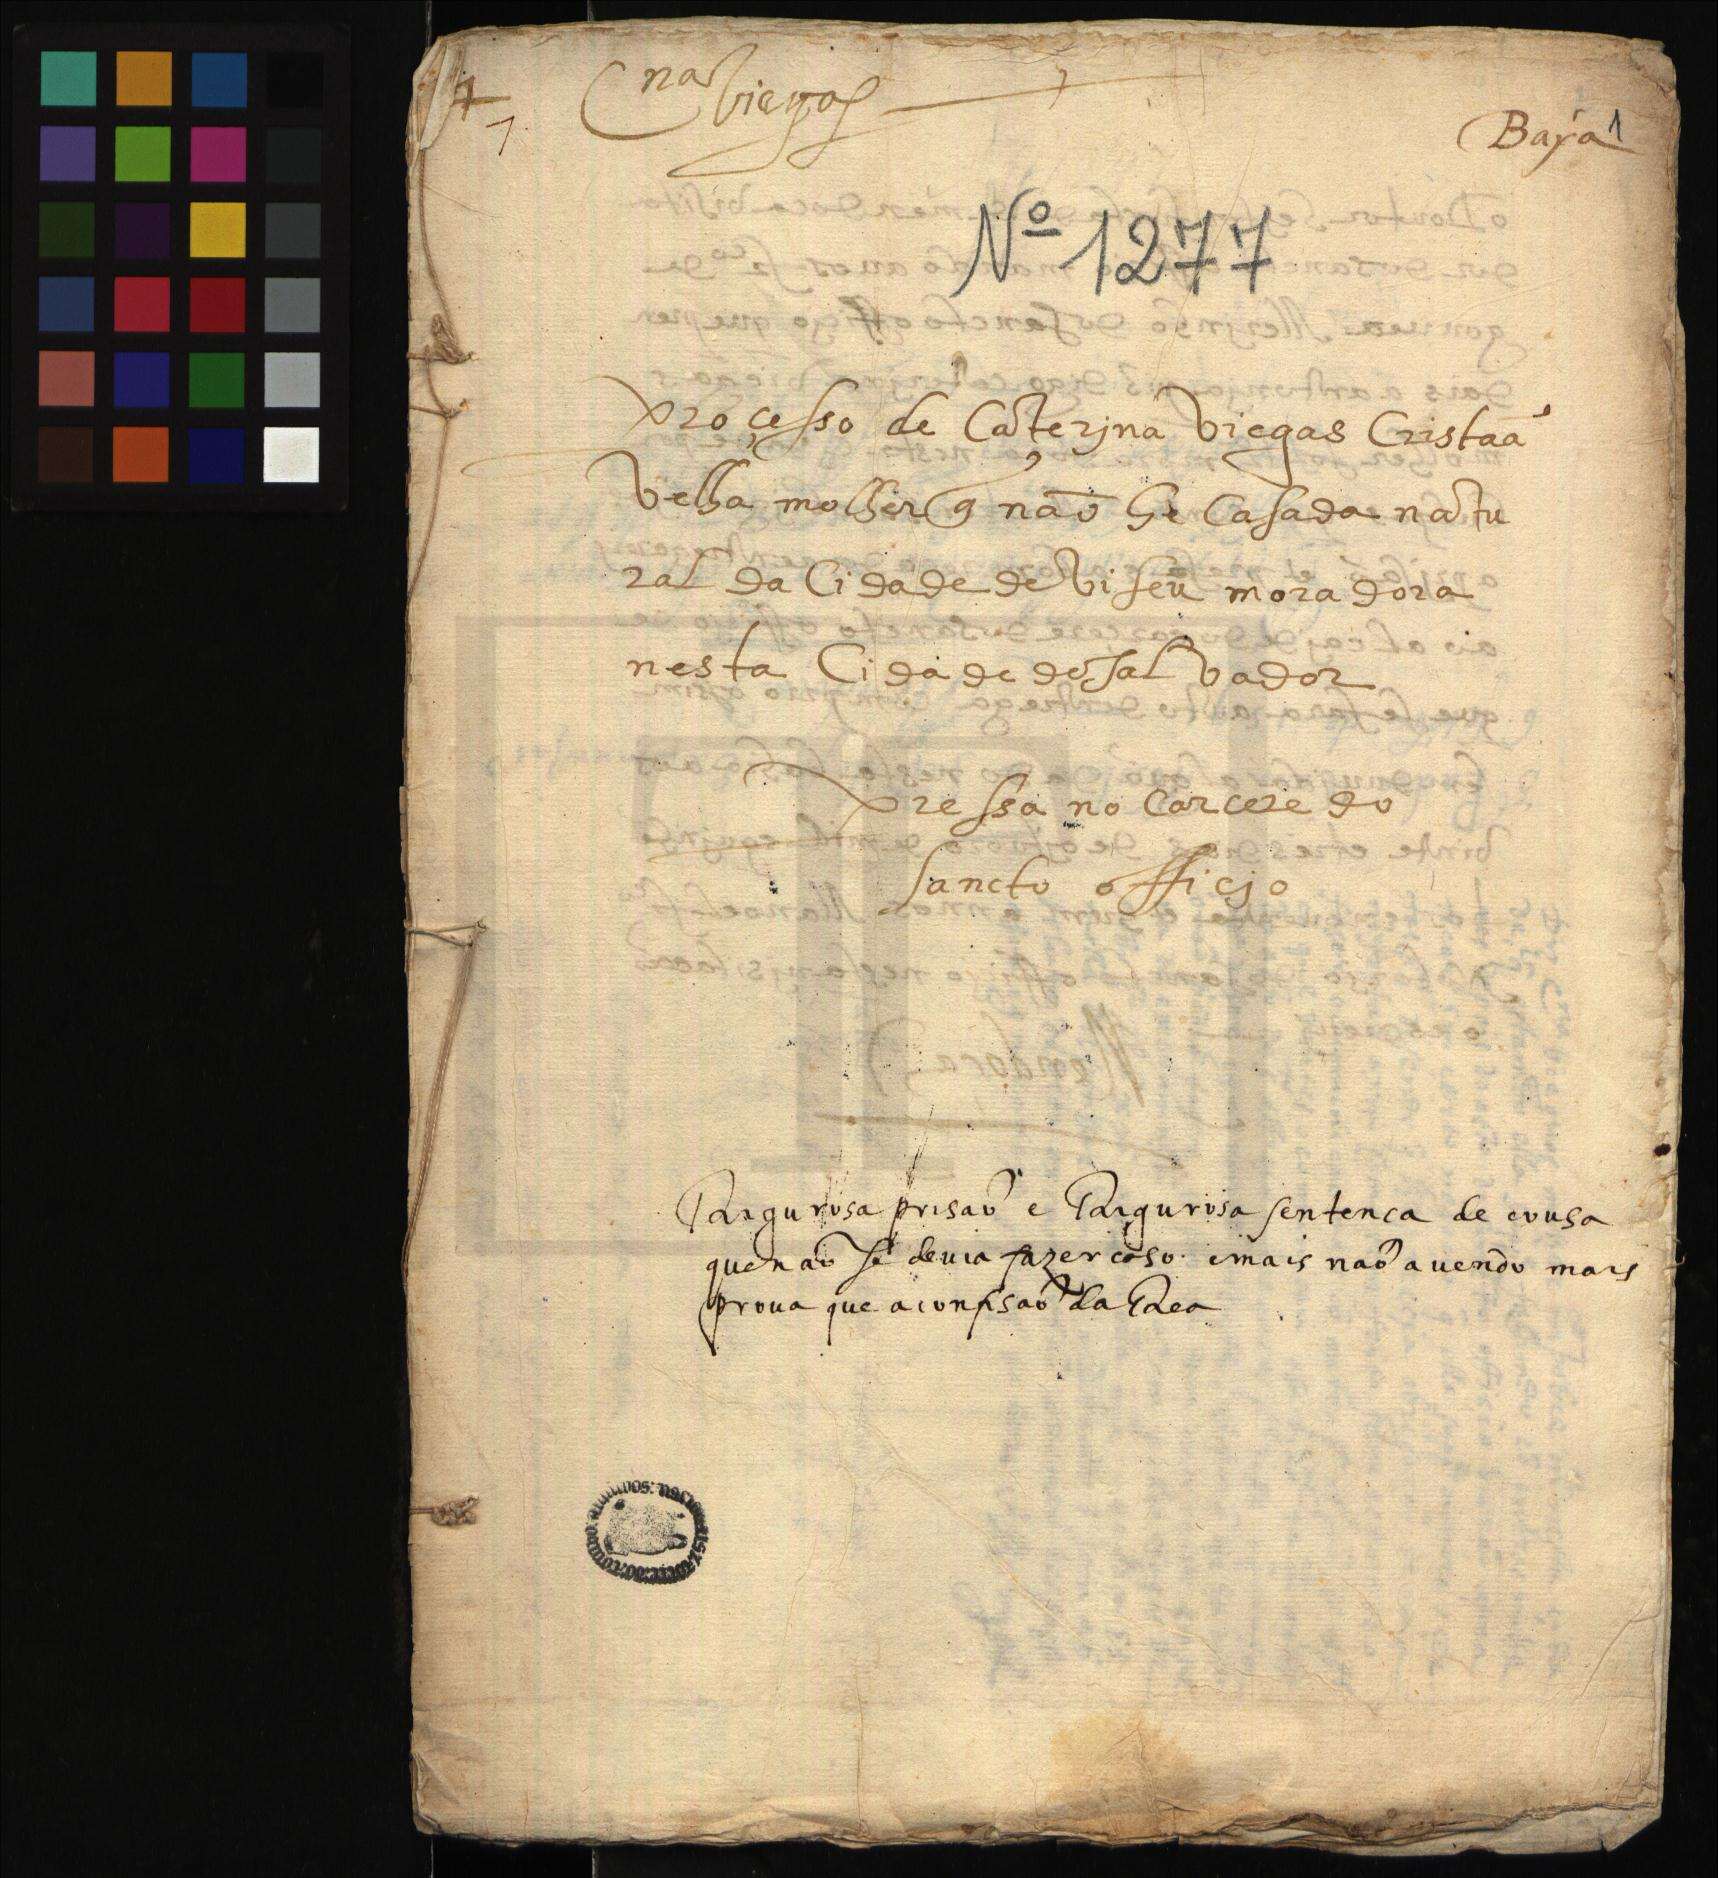 Cna Viegas
Baya 1
Nº 1277
Processo de Caterjna Viegas Cristaã
Velha molher q não he Casada natu
ral da Cidade de Viseu moradora
nesta Cidade do saluador
Pressa no Carcere do
sancto officjo
Rigurosa prisaõ e Rigurosa sentenca de cousa
que naõ se deuia fazer caso. e mais naõ auendo mais
proua que a confisaõ da Rea